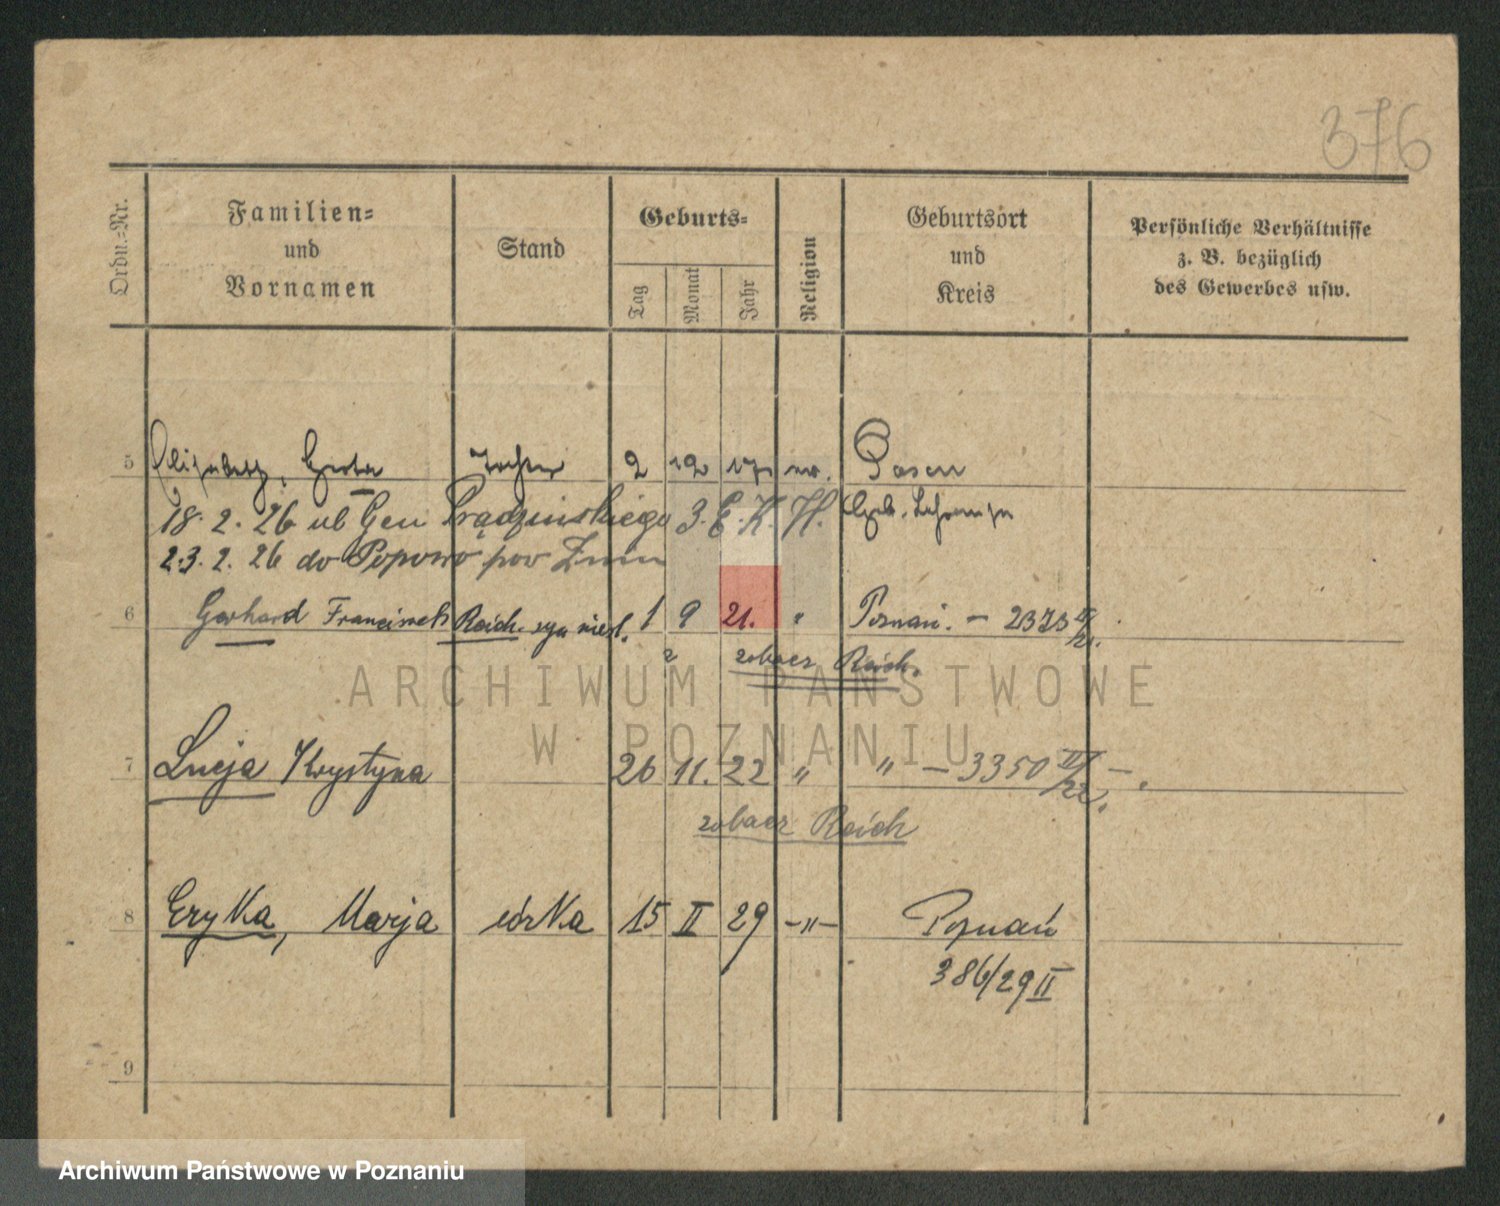 376
Ordn.-Nr.
Familien-
und
Vornamen
Stand
Geburts-
Tag
Monat
Jahr
Religion
Geburtsort
und
Kreis
Persönliche Verhältnisse
z. B. bezüglich
des Gewerbes usw.
5 Elisabeth, Gerta Tochter 2 12 17 Posen
18. 2. 26 ul Gen Prądzińskiego 3. E. K. H.
23. 2. 26 do Popowo pow Żnin
6 Gerhard Franciszek Reich. syn 1 9 21. " Poznań. - 2373
zobacz Reich.
7 Lucja Krystyna 26 11. 22 " " - 3350 IV/22.
zobacz Reich
8 Eryka, Marja córka 15 II 29 -"- Poznań
386/29 II
9
ARCHIWUM PAŃSTWOWE
W POZNANIU
Archiwum Państwowe w Poznaniu